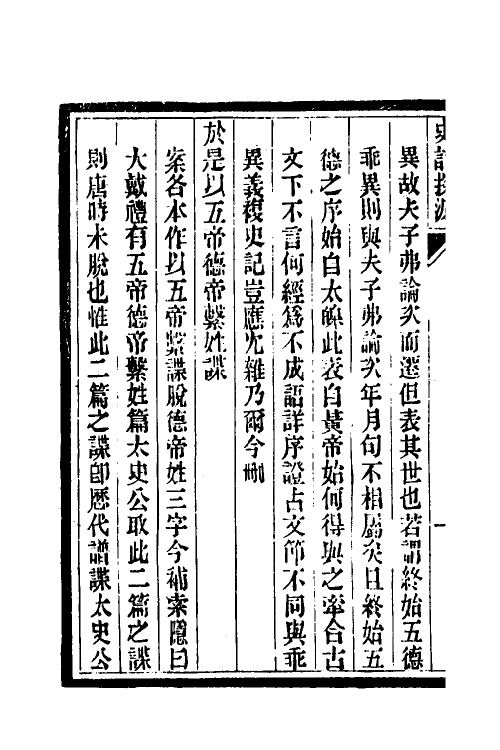 史記探源
異故夫子弗論矣而遷但表其世也若謂終始五德
乖異則與夫子弗論矣年月句不相屬矣且終始五
德之序始自太皞此表自黃帝始何得與之牽合古
文下不言何經爲不成語詳序證古文節不同與乖
異義複史記豈應宂雜乃爾今刪
於是以五帝德帝繫姓諜
案各本作以五帝繫諜脫德帝姓三字今補索隱曰
大戴禮有五帝德帝繫姓篇太史公取此二篇之諜
則唐時未脫也惟此二篇之諜卽歷代譜諜太史公